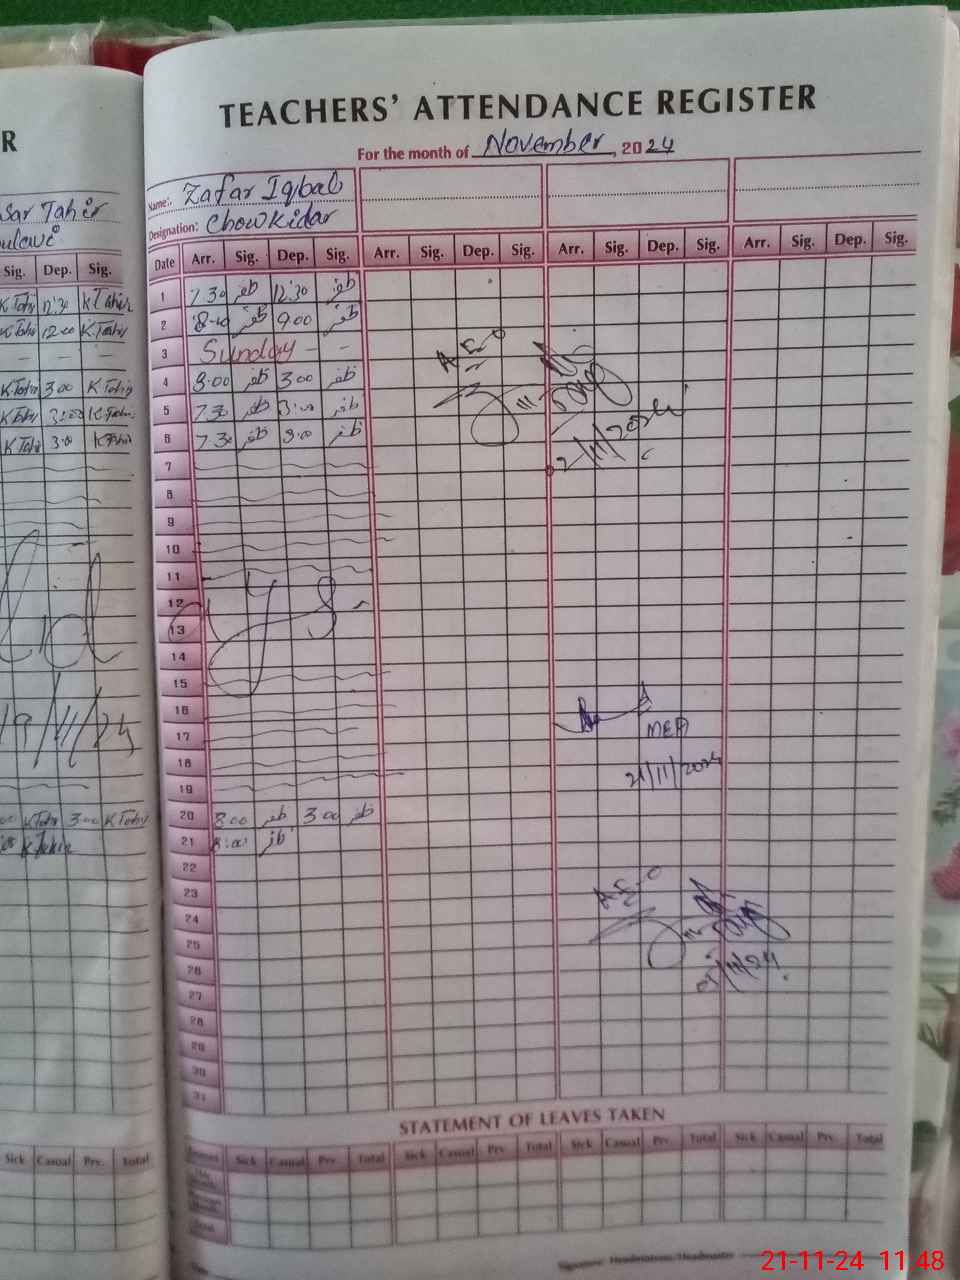 R
TEACHERS' ATTENDANCE REGISTER
For the month of November, 2024
sar Tahir
Name:- Zafar Iqbal
Designation: Chowkidar
Sig. Dep. Sig.
Date Arr. Sig. Dep. Sig. Arr. Sig. Dep. Sig. Arr. Sig. Dep. Sig. Arr. Sig. Dep. Sig.
K Tahir 12:30 K Tahir
1 7.30 ظفر 12:30 ظفر
K Tahir 12:00 K Tahir
2 ظفر 9.00 ظفر
— — —
3 Sunday - -
K Tahir 3.00 K Tahir
4 8.00 ظفر 3.00 ظفر
K Tahir 3:00 K Tahir
5 7.30 ظفر 3:00 ظفر
K Tahir 3:0 K Tahir
6 7.30 ظفر 3:00 ظفر
A E O
2/11/2024
7
8
9
10
11
12
13
14
15
16
17
18
19
19/11/24
MEA
21/11/2024
00 K Tahir 3.00 K Tahir
20 8.00 ظفر 3.00 ظفر
K Tahir
21 8:00 ظفر
22
23
24
25
26
27
28
29
30
31
A.E.O
/11/24
STATEMENT OF LEAVES TAKEN
Sick Casual Prv. Total
Sick Casual Prv. Total Sick Casual Prv. Total Sick Casual Prv. Total Sick Casual Prv. Total
Signature Headmistress/Headmaster
21-11-24 11:48